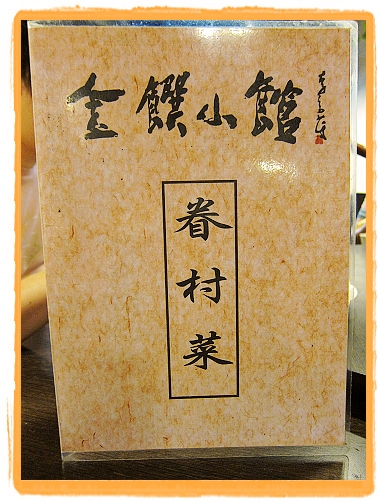 金饌小館
眷村菜